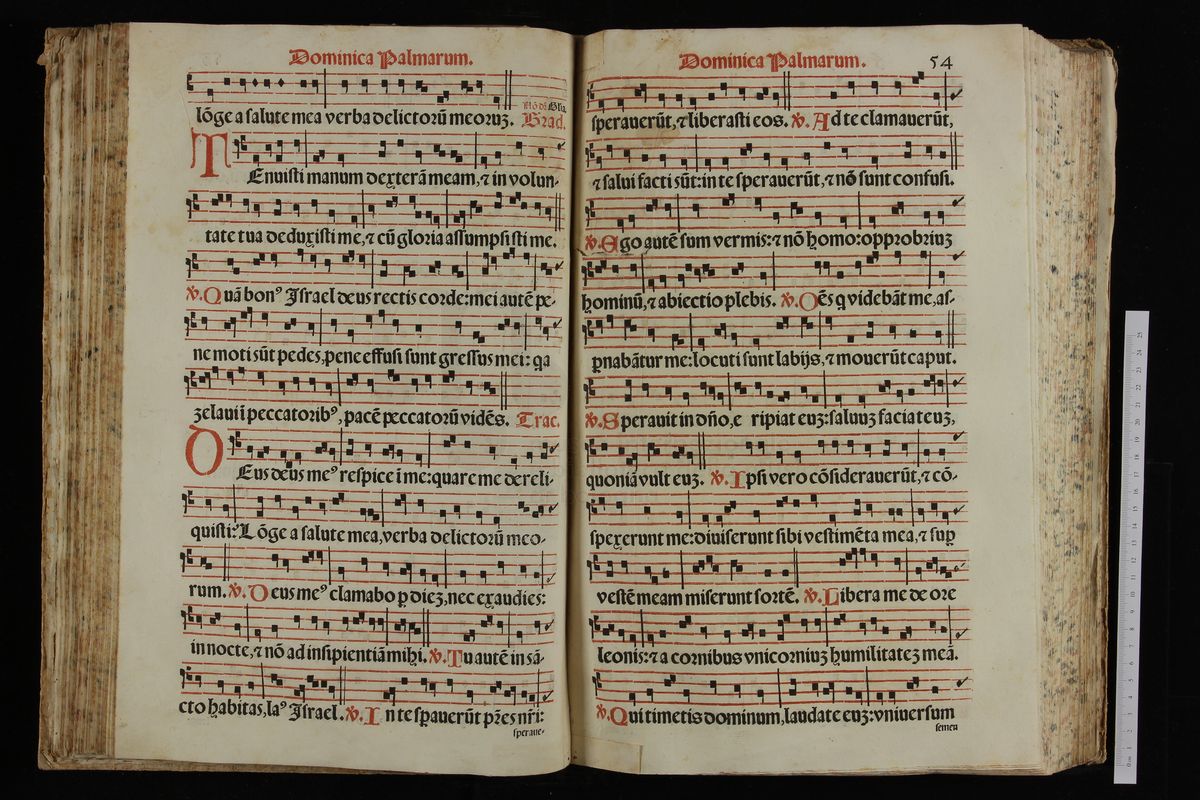 Dominica Palmarum.
lõge a salute mea verba delictorũ meoruꝫ. Nõ dr̃ Glia.
Grad.
TEnuisti manum dexterã meam, ⁊ in volun-
tate tua deduxisti me, ⁊ cũ gloria assumpsisti me.
℣. Quã bonꝰ Israel deus rectis corde: mei autẽ pe-
ne moti sũt pedes, pene effusi sunt gressus mei: qa
zelaui ĩ peccatoribꝰ, pacẽ peccatorũ vidẽs. Trac.
DEus deus meꝰ respice ĩ me: quare me dereli-
quisti? Lõge a salute mea, verba delictorũ meo-
rum. ℣. Deus meꝰ clamabo ꝑ dieꝫ, nec exaudies:
in nocte, ⁊ nõ ad insipientiã mihi. ℣. Tu autẽ in sã-
cto habitas, laꝰ Israel. ℣. In te sꝑauerũt pr̃es nr̃i:
speraue-
Dominica Palmarum. 54
sperauerũt, ⁊ liberasti eos. ℣. Ad te clamauerũt,
⁊ salui facti sũt: in te sperauerũt, ⁊ nõ sunt confusi.
℣. Ego autẽ sum vermis: ⁊ nõ homo: opprobriuꝫ
hominũ, ⁊ abiectio plebis. ℣. Oẽs q videbãt me, as-
ꝑnabãtur me: locuti sunt labijs, ⁊ mouerũt caput.
℣. Sperauit in dño, e ripiat euꝫ: saluuꝫ faciat euꝫ,
quoniã vult euꝫ. ℣. Ipsi vero cõsiderauerũt, ⁊ cõ-
spexerunt me: diuiserunt sibi vestimẽta mea, ⁊ suꝑ
vestẽ meam miserunt sortẽ. ℣. Libera me de ore
leonis: ⁊ a cornibus vnicorniuꝫ humilitateꝫ meã.
℣. Qui timetis dominum, laudate euꝫ: vniuersum
semen